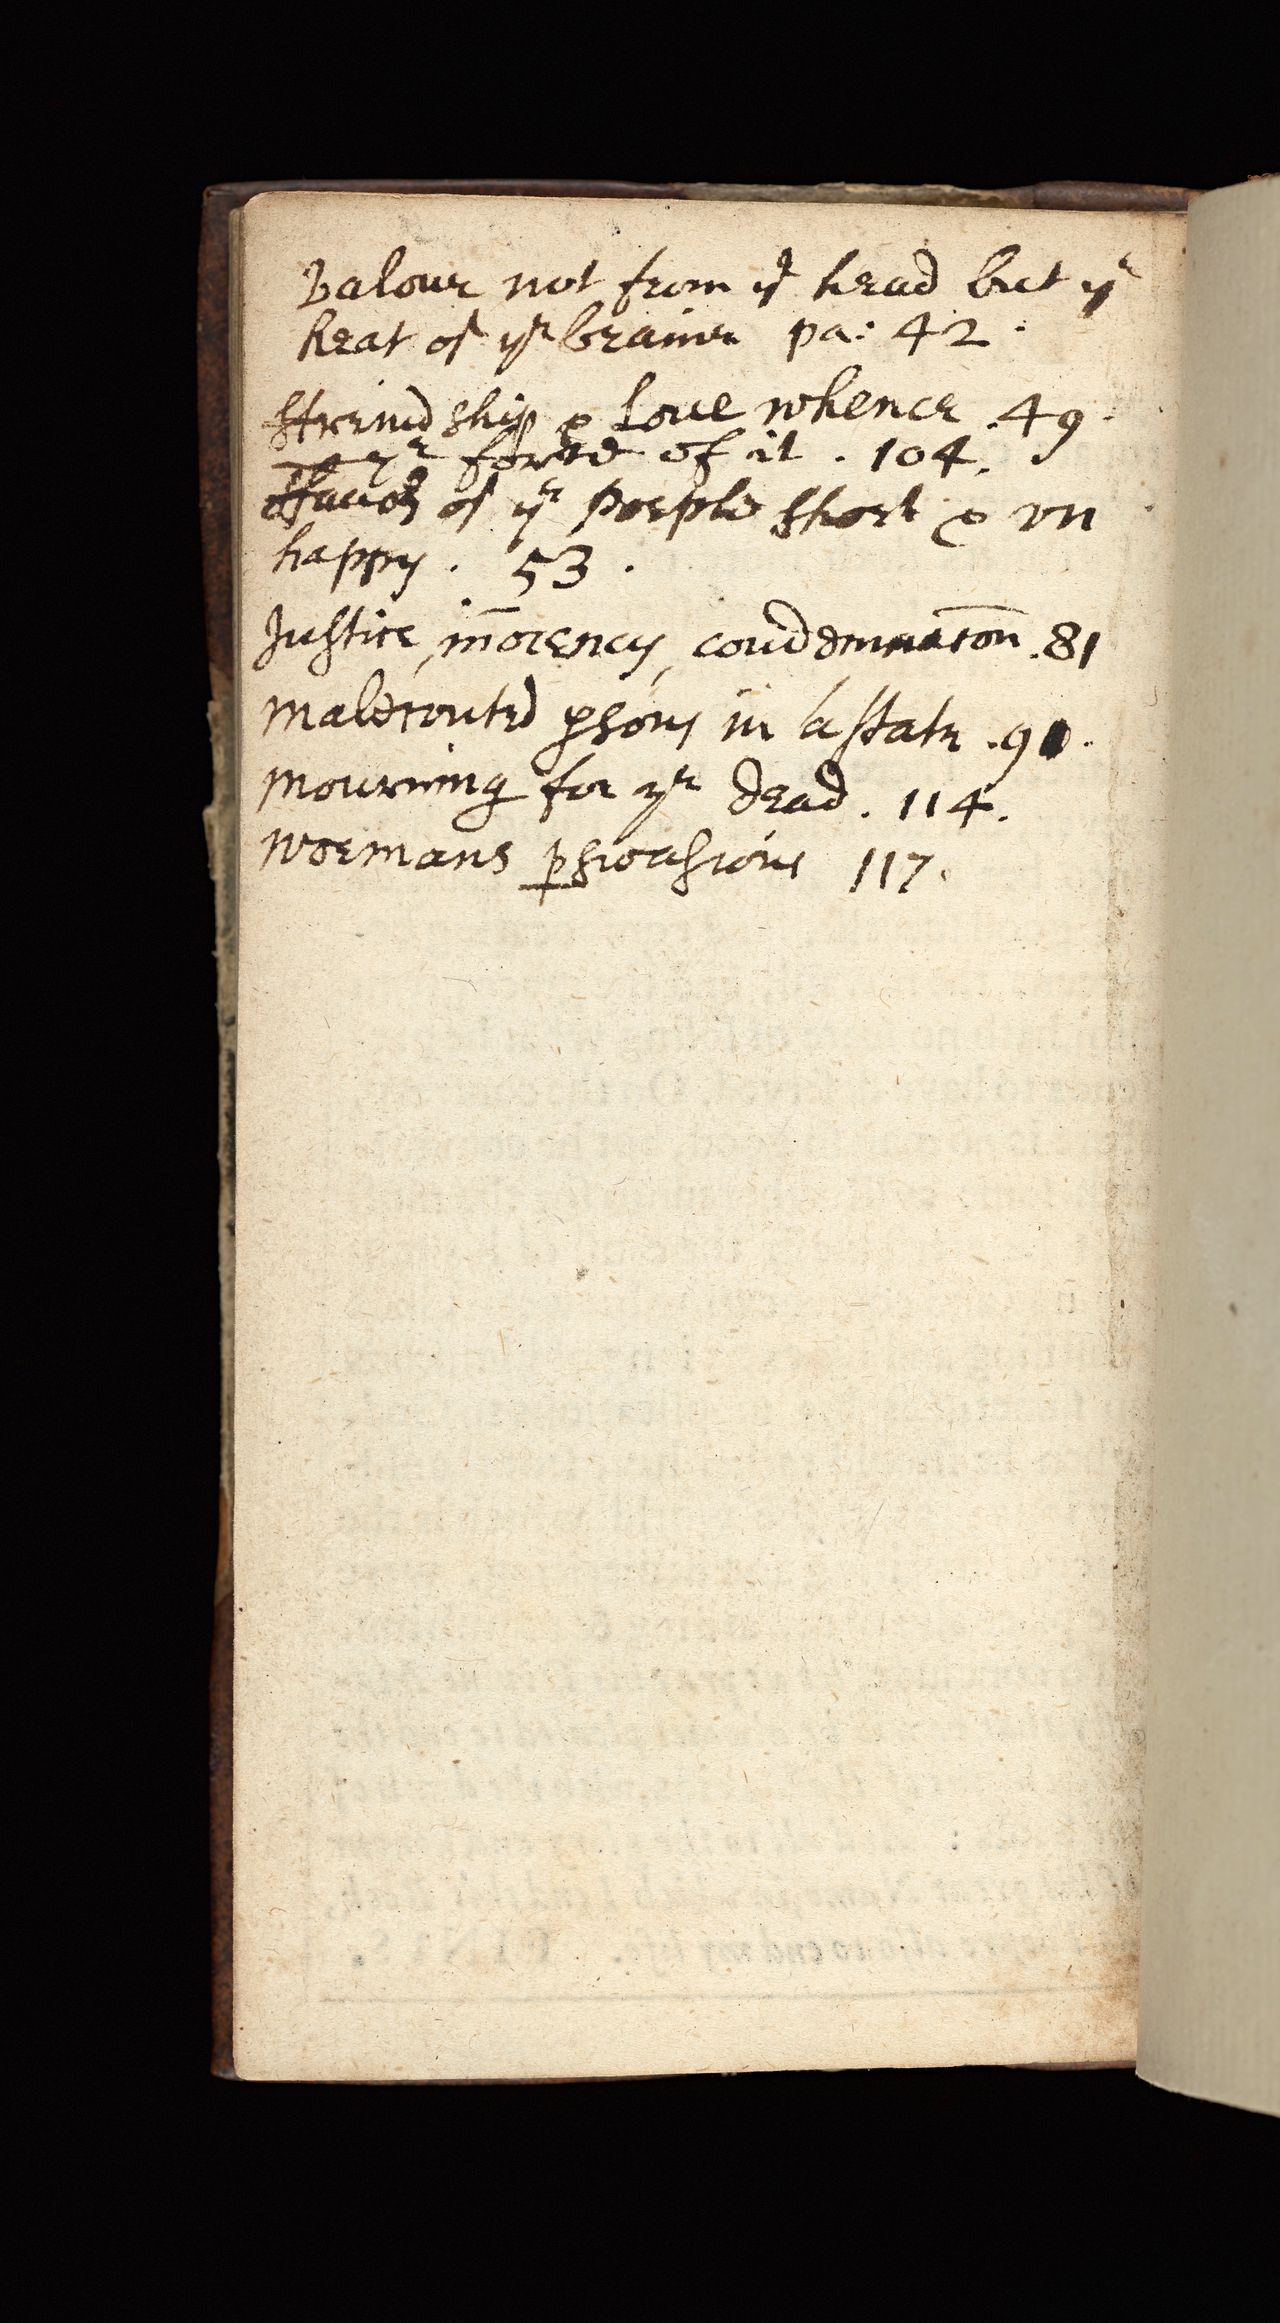 Valour not from ye head but ye
heat of ye braine pa: 42.
ffreindship & Loue whence .49.
ye force of it . 104.
ffauor of ye people short & vn
happy . 53 .
Justice, iñocency, condemnatōn .81
Malecontēd ꝑsons in a state .90.
Mourning for ye dead . 114.
Woemans ꝑswasions 117.